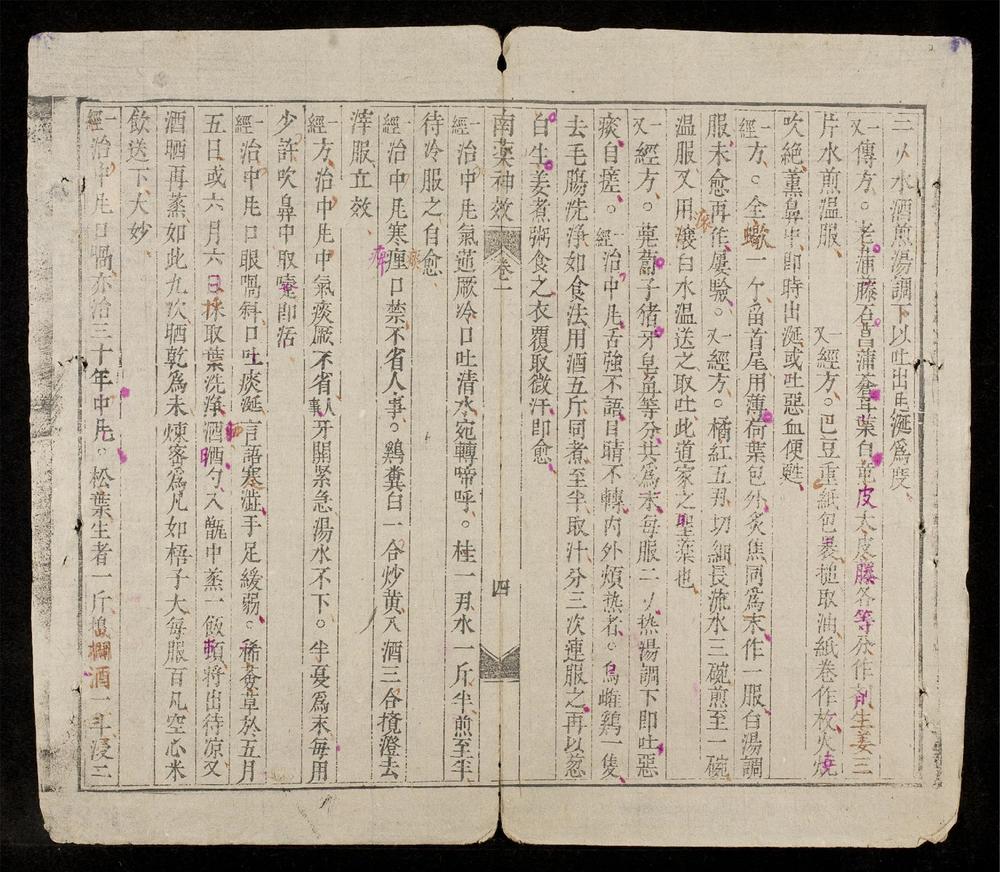 二𠂊水酒煎湯調下以吐出毛涎爲度
一又傳方。老蒲藤石菖蒲蒼耳葉白芷皮大皮藤各等分作剤生姜三
片水煎温服　一又經方。巴豆重紙包裹搥取油紙卷作枚火燒
吹絶薰鼻中即時出涎或吐惡血便甦
一經方。全蠍一个畱首尾用薄荷葉包外炙焦同爲末作一服白湯調
服未愈再作屢驗。一又經方。橘紅五刄切細長流水三碗煎至一碗
温服又用滾白水温送之取吐此道家之聖藥也
一又經方。葶藶子猪牙皂莢等分共爲末每服二𠂊熱湯調下即吐惡
痰自瘥。一經治中凡舌強不語目睛不轉內外煩热者。烏雌鷄一隻
去毛膓洗淨如食法用酒五斤同煮至半取汁分三次連服之再以葱
白生姜煮粥食之衣覆取微汗即愈
南藥神效　卷二　四
一經治中凡氣逆厥冷口吐清水宛轉啼呼。桂一刄水一斤半煎至半
待冷服之自愈
一經治中凡寒痙口禁不省人事。鷄糞白一合炒黄入酒三合攪澄去
滓服立效
一經方治中凡中氣痰厥不省人事牙關緊急湯水不下。半夏爲末每用
少許吹鼻中取嚏即活
一經治中凡口眼喎斜口吐痰涎言語寒澁手足緩弱。稀薟草於五月
五日或六月六日採取葉洗淨酒洒勺入甑中蒸一飯頃將出待凉又
酒晒再蒸如此九次晒乾爲末煉密爲凡如梧子大每服百凡空心米
飲送下大妙
一經治中凡口喎亦治三十年中凡。松葉生者一斤搗欄酒一斗浸三